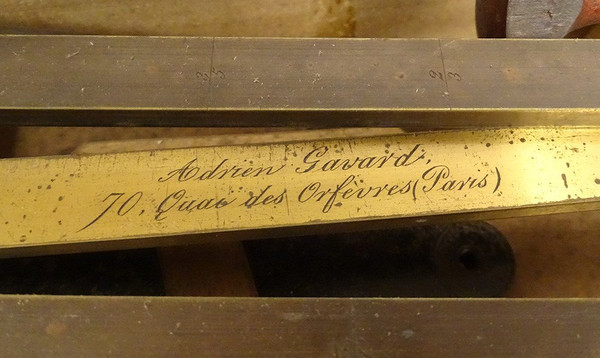 2 3 2 3
Adrien Gavard,
70, Quai des Orfèvres (Paris)